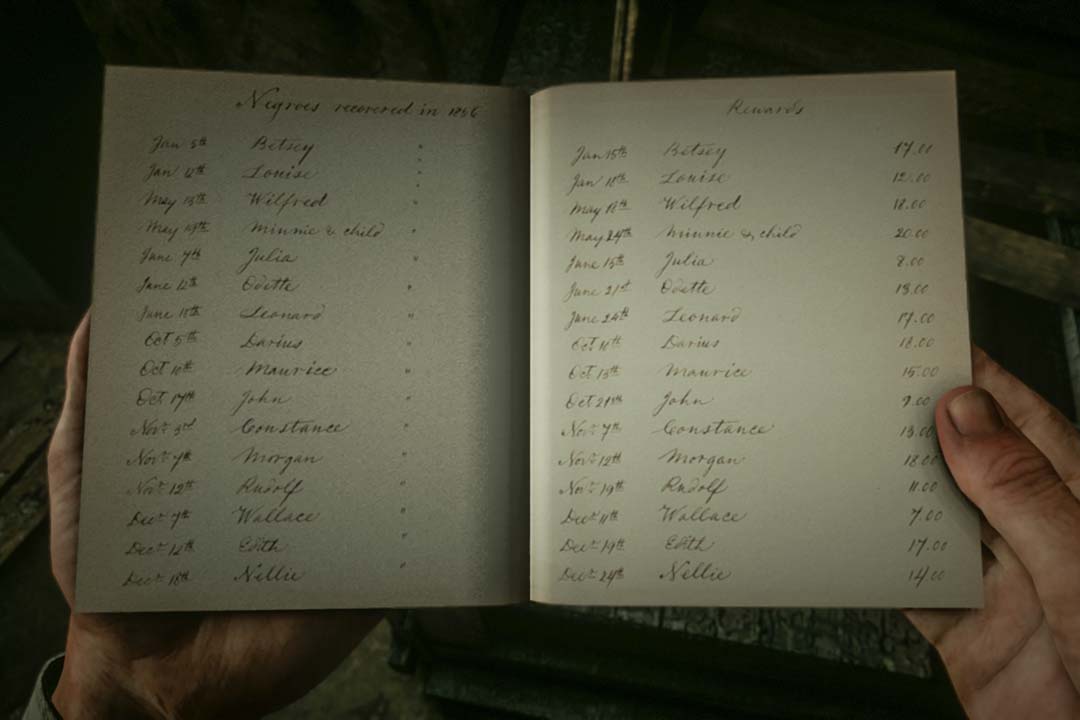 Negroes recovered in 1856
Jan 5th Betsey "
Jan 12th Louise "
May 13th Wilfred "
May 19th Minnie & child "
June 7th Julia "
June 12th Odette "
June 18th Leonard "
Oct 5th Darius "
Oct 10th Maurice "
Oct 17th John "
Nov. 3rd Constance "
Nov. 7th Morgan "
Nov. 12th Rudolf "
Dec. 7th Wallace "
Dec. 12th Edith "
Dec. 18th Nellie "
Rewards
Jan 15th Betsey 17.00
Jan 18th Louise 12.00
May 18th Wilfred 18.00
May 24th Minnie & child 20.00
June 15th Julia 8.00
June 21st Odette 13.00
June 24th Leonard 17.00
Oct 10th Darius 18.00
Oct 13th Maurice 15.00
Oct 21th John 9.00
Nov. 7th Constance 13.00
Nov. 12th Morgan 18.00
Nov. 19th Rudolf 11.00
Dec. 11th Wallace 7.00
Dec. 19th Edith 17.00
Dec. 24th Nellie 14.00